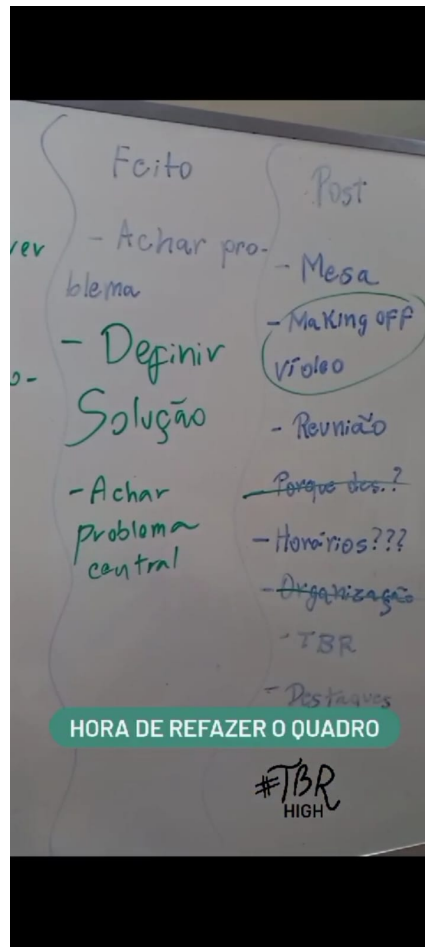 Feito
- Achar pro-
blema
- Definir
Solução
- Achar
problema
central
Post
- Mesa
- Making off
vídeo
- Reunião
- Porque des.?
- Horários???
- Organização
- TBR
- Destaques
HORA DE REFAZER O QUADRO
#TBR
HIGH